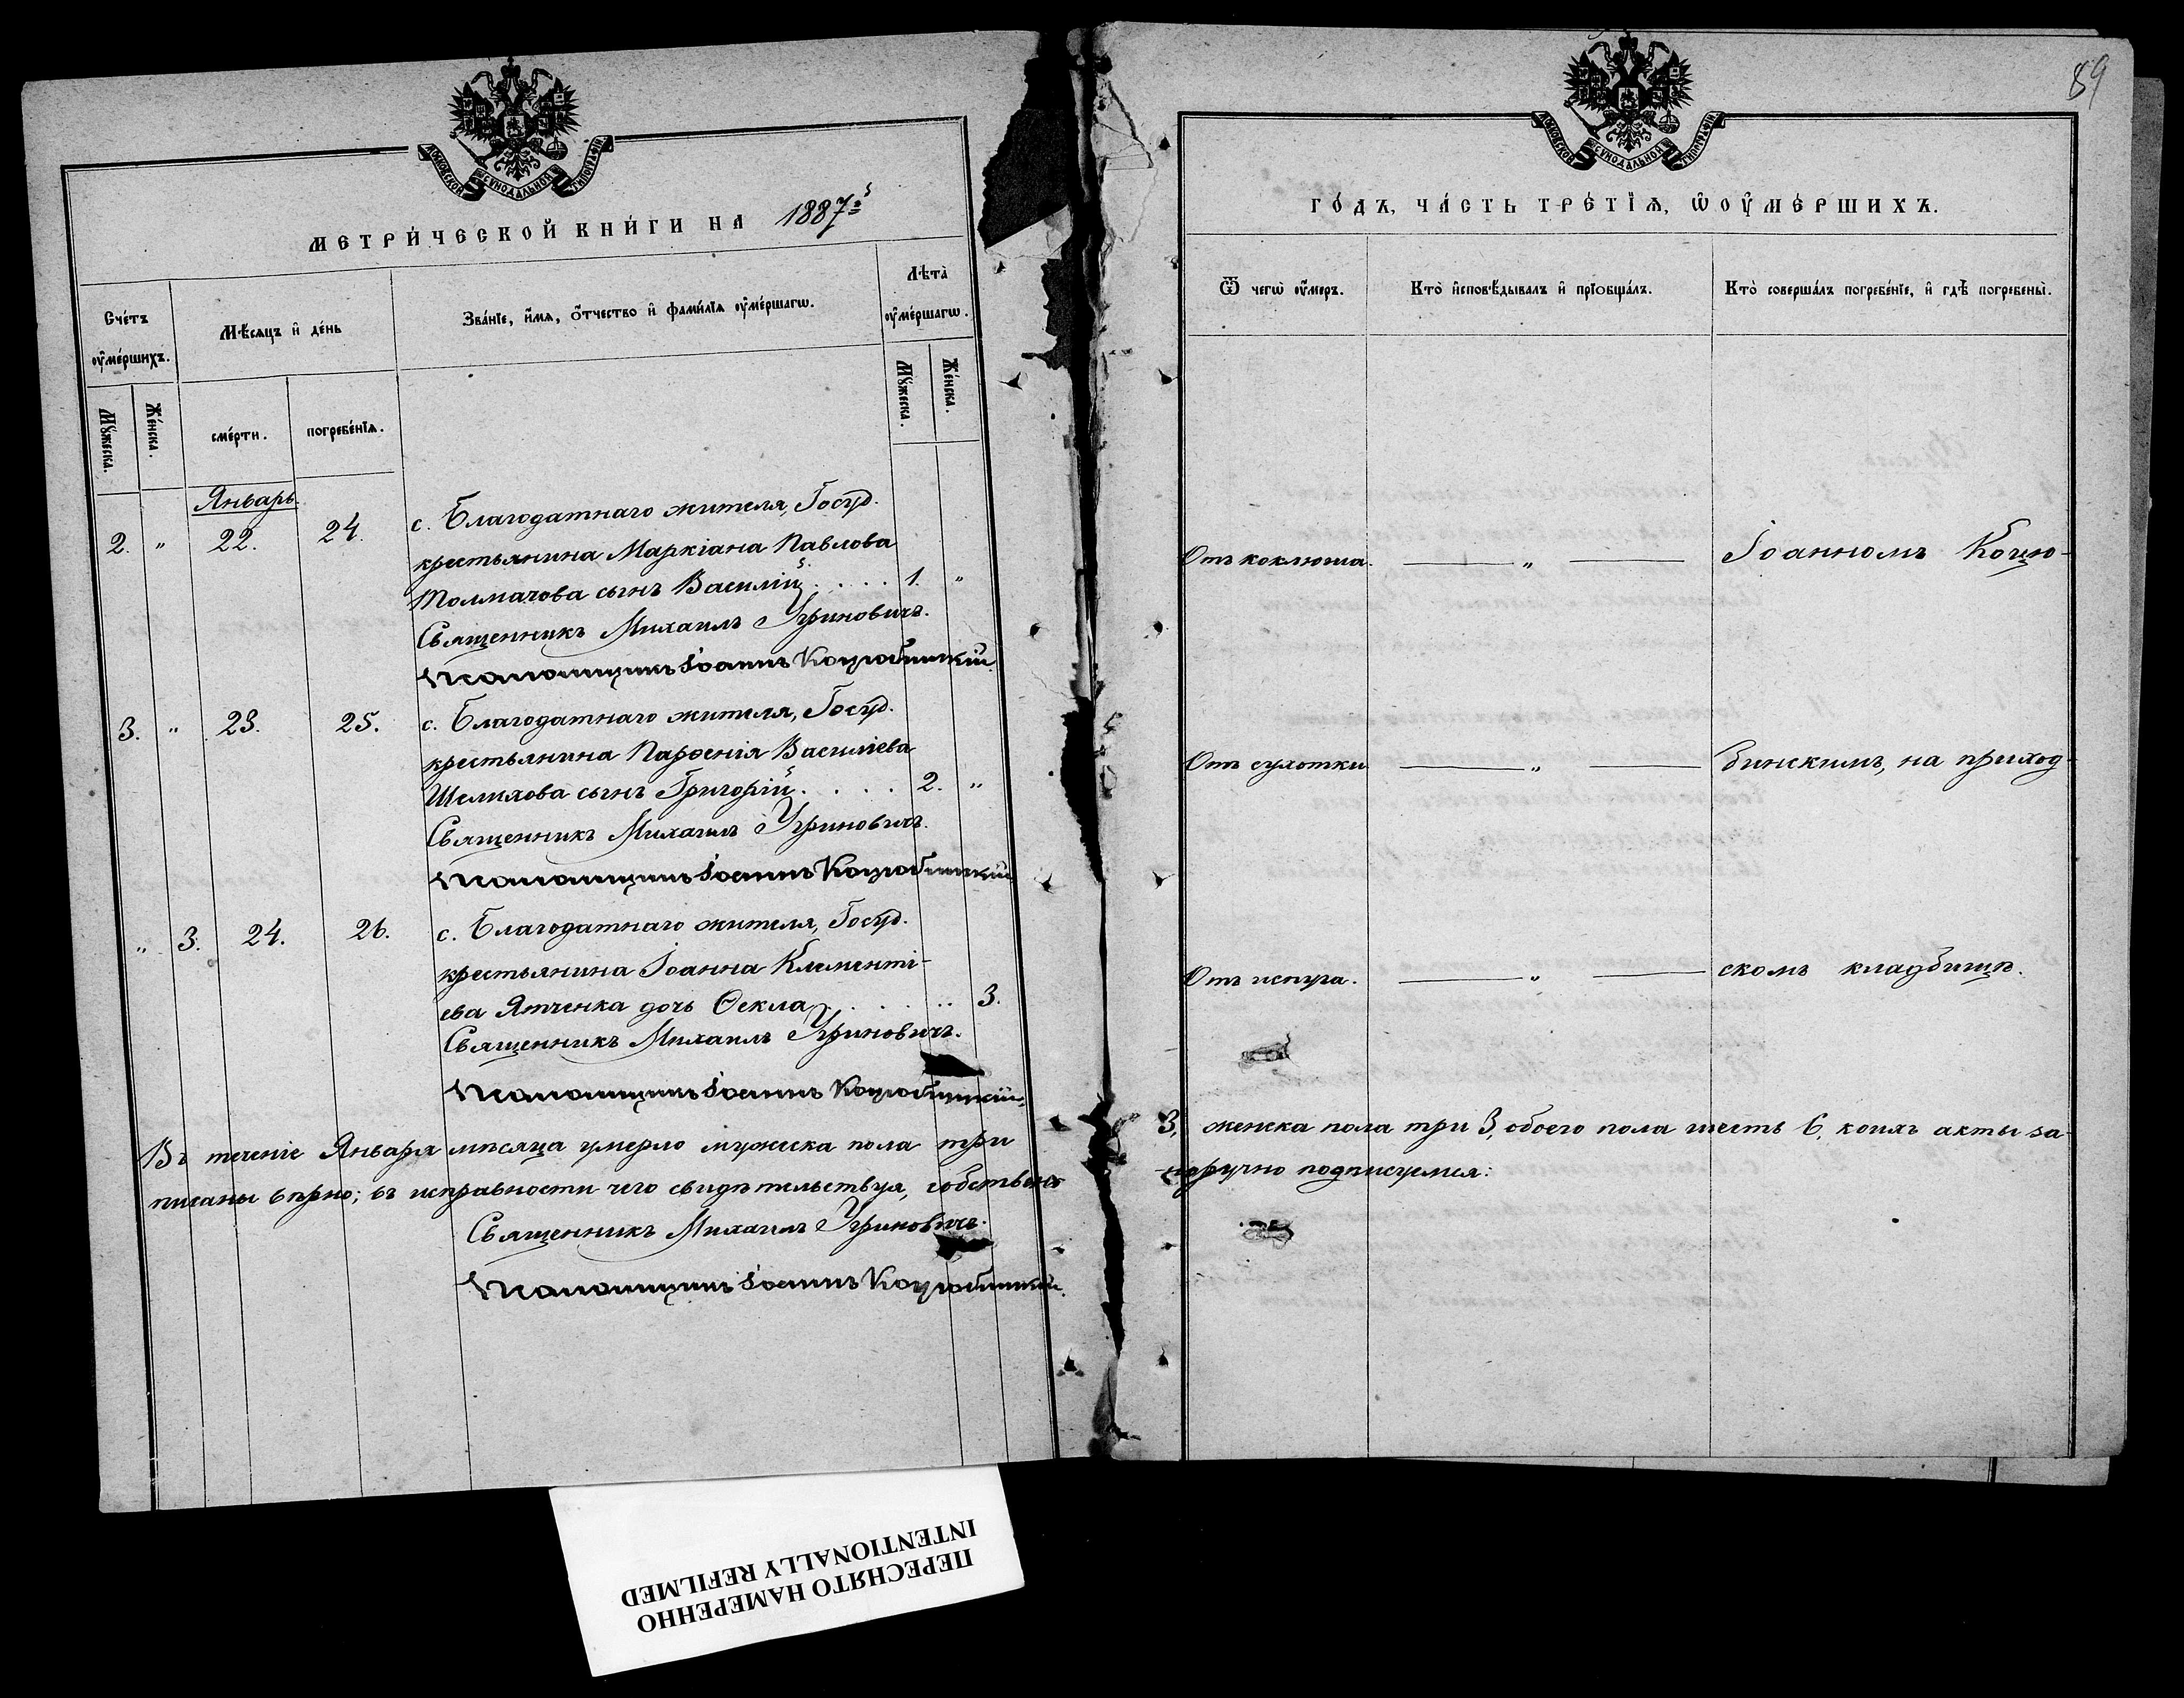 МОСКОВСКОЙ СѴНОДАЛЬНОЙ ТИПОГРАФІИ
МЕТРИ́ЧЕСКОЙ КНИ́ГИ НА 1887й
Сче́тъ оу҆ме́ршихъ.
Мѣ́сяцъ и҆ де́нь
Зва́нїе, и҆́мѧ, ѻ҆́тчество и҆ фами́лїѧ оу҆ме́ршагѡ.
Лѣта̀ оу҆ме́ршагѡ.
Мꙋ́жеска.
Же́нска.
сме́рти.
погребе́нїѧ.
Мꙋ́жеска.
Же́нска.
Январь.
2. „ 22. 24. с. Благодатнаго жителя, Госуд.
крестьянина Маркіана Павлова
Толмачова сынъ Василій . . . . 1. „
Священникъ Михаилъ Угриновичъ.
Псаломщикъ Іоаннъ Коцюбинскій.
3. „ 23. 25. с. Благодатнаго жителя, Госуд.
крестьянина Парѳенія Василіева
Шелихова сынъ Григорій . . . . 2. „
Священникъ Михаилъ Угриновичъ.
Псаломщикъ Іоаннъ Коцюбинскій
„ 3. 24. 26. с. Благодатнаго жителя, Госуд.
крестьянина Іоанна Клименті-
ева Ятченка дочь Ѳекла . . . . „ 3.
Священникъ Михаилъ Угриновичъ.
Псаломщикъ Іоаннъ Коцюбинскій.
Въ теченіе Января мѣсяца умерло мужеска пола три
писаны вѣрно; въ исправности чего свидѣтельствуя, собственно
Священникъ Михаилъ Угриновичъ.
Псаломщикъ Іоаннъ Коцюбинскій.
89
МОСКОВСКОЙ СѴНОДАЛЬНОЙ ТИПОГРАФІИ
ГО́ДЪ, ЧА́СТЬ ТРЕ́ТЇѦ, Ѡ ОУ҆МЕ́РШИХЪ.
Ѿ чегѡ̀ оу҆́меръ.
Кто̀ и҆сповѣ́дывалъ и҆ прїѡбща́лъ.
Кто̀ соверша́лъ погребе́нїе, и҆ гдѣ̀ погребены̀.
Отъ коклюша. „ Іоанномъ Коцю-
Отъ сухотки „ бинскимъ, на приход-
Отъ испуга. „ скомъ кладбищѣ.
3, женска пола три 3, обоего пола шесть 6, коихъ акты за-
-норучно подписуемся:
ПЕРЕСНЯТО НАМЕРЕННО
INTENTIONALLY REFILMED